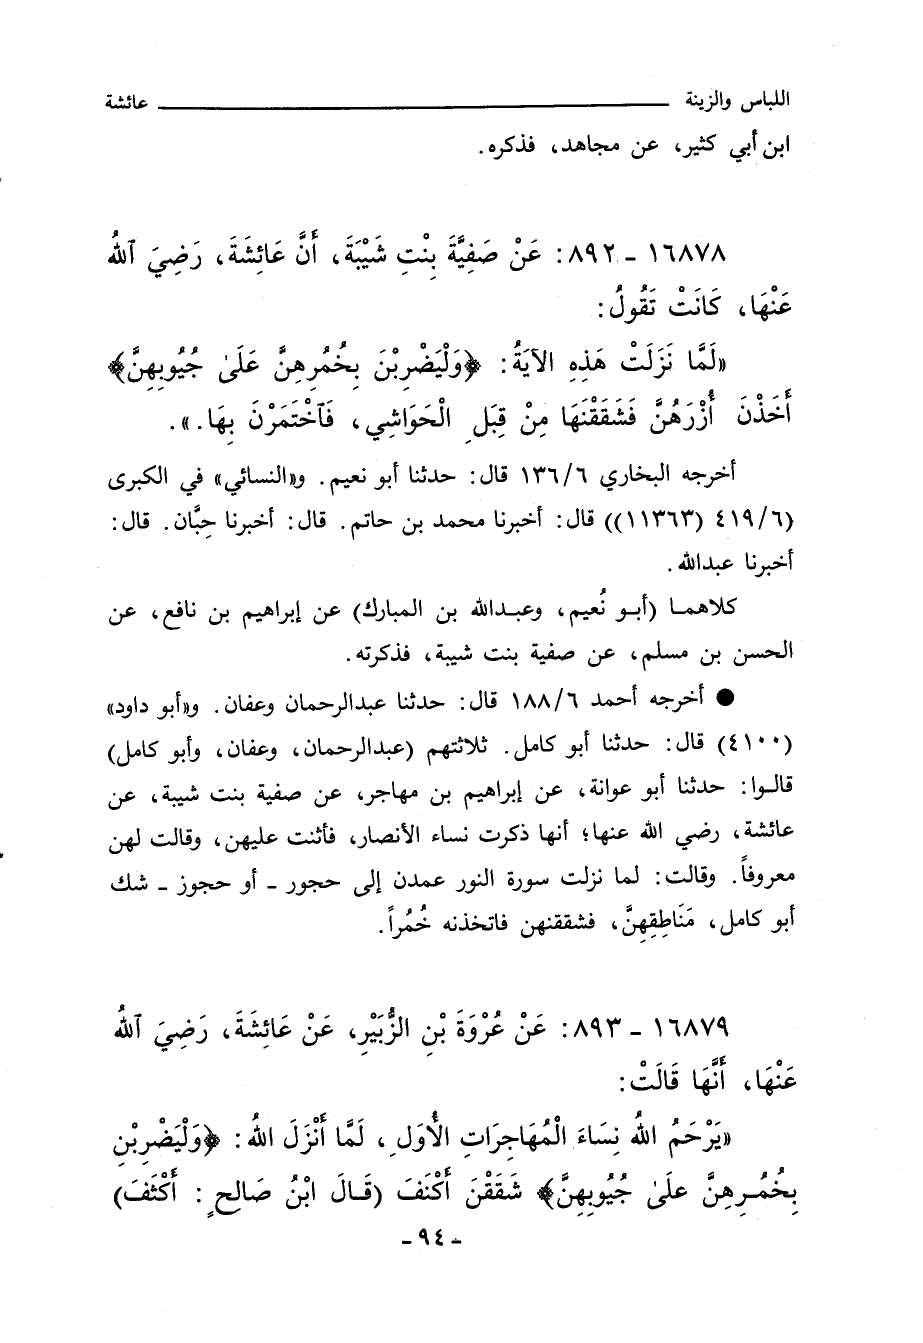 اللباس والزينة ــــــــــــــــ عائشة
ابن أبي كثير، عن مجاهد، فذكره.
١٦٨٧٨ - ٨٩٢: عَنْ صَفِيَّةَ بِنْتِ شَيْبَةَ، أَنَّ عَائِشَةَ، رَضِيَ ٱللهُ
عَنْهَا، كَانَتْ تَقُولُ:
«لَمَّا نَزَلَتْ هَذِهِ الآيَةُ: ﴿وَلْيَضْرِبْنَ بِخُمُرِهِنَّ عَلَىٰ جُيُوبِهِنَّ﴾
أَخَذْنَ أُزْرَهُنَّ فَشَقَقْنَهَا مِنْ قِبَلِ الْحَوَاشِي، فَٱخْتَمَرْنَ بِهَا.».
أخرجه البخاري ١٣٦/٦ قال: حدثنا أبو نعيم. و«النسائي» في الكبرى
(٤١٩/٦ (١١٣٦٣)) قال: أخبرنا محمد بن حاتم. قال: أخبرنا حِبَّان. قال:
أخبرنا عبدالله.
كلاهما (أبو نُعيم، وعبدالله بن المبارك) عن إبراهيم بن نافع، عن
الحسن بن مسلم، عن صفية بنت شيبة، فذكرته.
● أخرجه أحمد ١٨٨/٦ قال: حدثنا عبدالرحمان وعفان. و«أبو داود»
(٤١٠٠) قال: حدثنا أبو كامل. ثلاثتهم (عبدالرحمان، وعفان، وأبو كامل)
قالوا: حدثنا أبو عوانة، عن إبراهيم بن مهاجر، عن صفية بنت شيبة، عن
عائشة، رضي الله عنها؛ أنها ذكرت نساء الأنصار، فأثنت عليهن، وقالت لهن
معروفاً. وقالت: لما نزلت سورة النور عمدن إلى حجور - أو حجوز - شك
أبو كامل، مَنَاطِقِهِنَّ، فشققنهن فاتخذنه خُمُراً.
١٦٨٧٩ - ٨٩٣: عَنْ عُرْوَةَ بْنِ الزُّبَيْرِ، عَنْ عَائِشَةَ، رَضِيَ ٱللهُ
عَنْهَا، أَنَّهَا قَالَتْ:
«يَرْحَمُ اللهُ نِسَاءَ الْمُهَاجِرَاتِ الأُوَلِ، لَمَّا أَنْزَلَ اللهُ: ﴿وَلْيَضْرِبْنِ
بِخُمُرِهِنَّ عَلَىٰ جُيُوبِهِنَّ﴾ شَقَقْنَ أَكْنَفَ (قَالَ ابْنُ صَالِحٍ: أَكْثَفَ)
- ٩٤ -